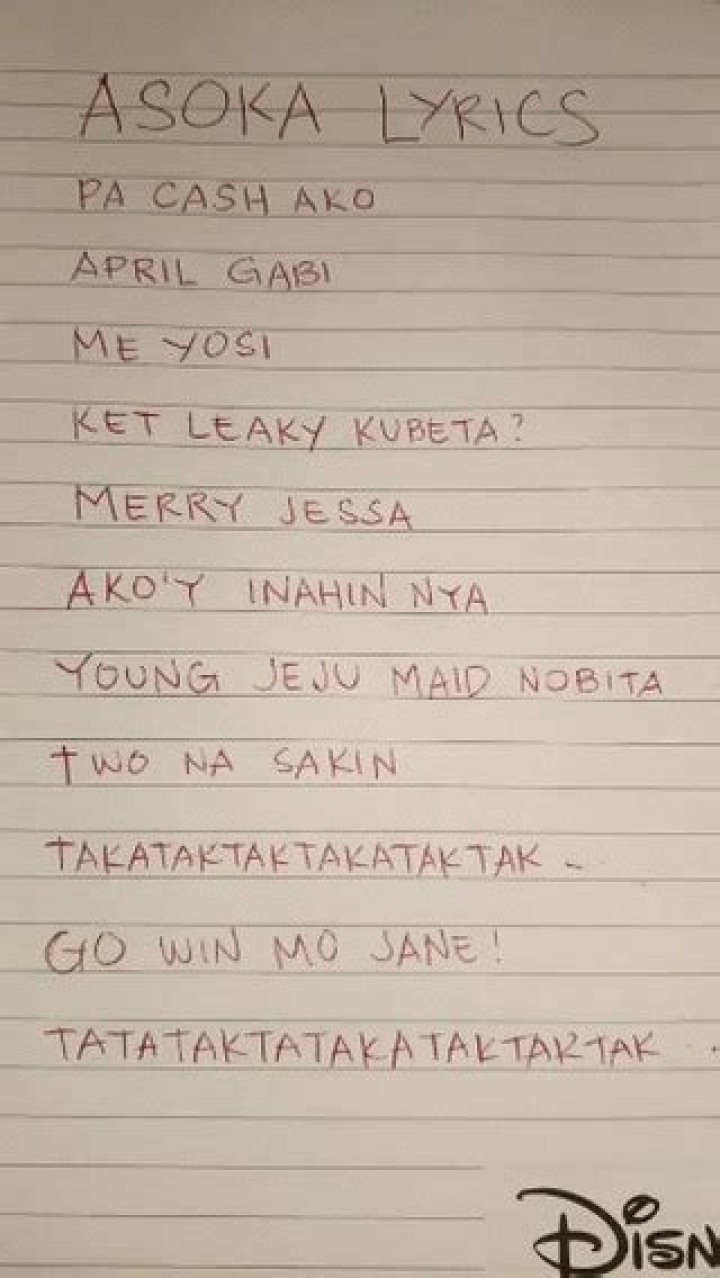 ASOKA LYRICS
PA CASH AKO
APRIL GABI
ME YOSI
KET LEAKY KUBETA?
MERRY JESSA
AKO'Y INAHIN NYA
YOUNG JEJU MAID NOBITA
TWO NA SAKIN
TAKATAKTAKTAKATAKTAK -
GO WIN MO JANE!
TATATAKTATAKATAKTAKTAK
DISN